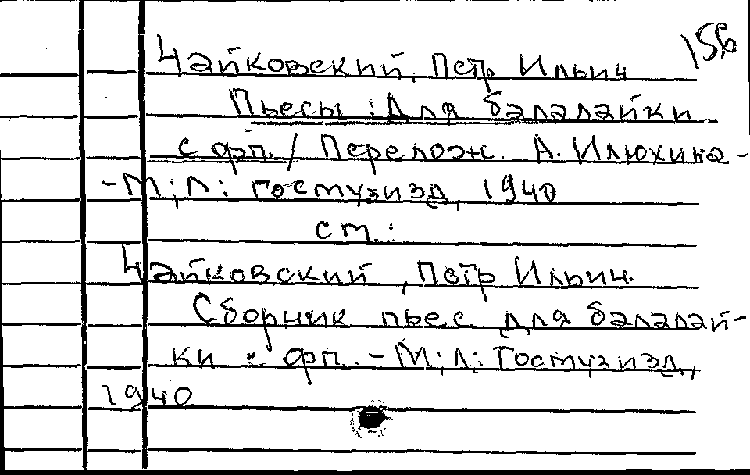 156
Чайковский, Петр Ильич
Пьесы: Для балалайки
с фп. / Перелож. А. Илюхина -
- М; Л: Гостузизд, 1940
см.:
Чайковский, Петр Ильич.
Сборник пьес для балалай-
ки с фп. - М; Л: Гостузизд,
1940